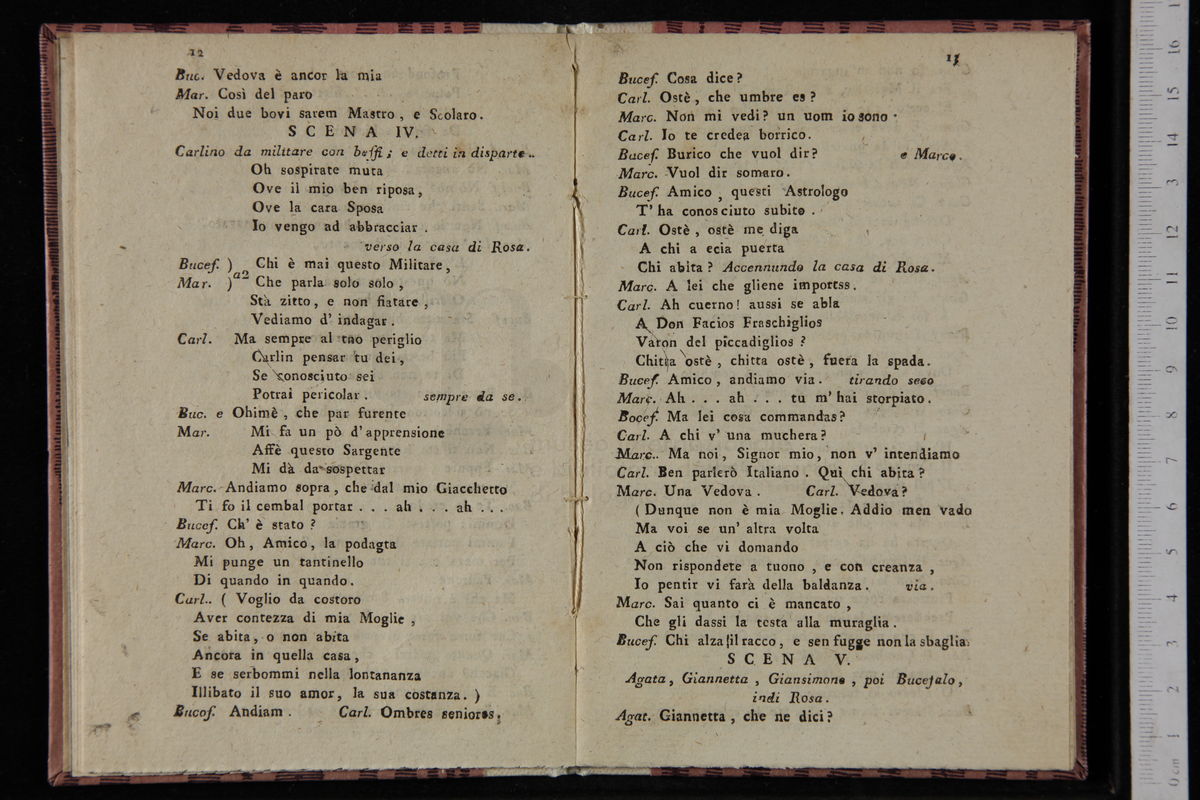 12
Buc. Vedova è ancor la mia
Mar. Così del paro
Noi due bovi sarem Mastro , e Scolaro.
SCENA IV.
Carlino da militare con baffi ; e detti in disparte ..
Oh sospirate mura
Ove il mio ben riposa,
Ove la cara Sposa
Io vengo ad abbracciar .
verso la casa di Rosa.
Bucef. ) Chi è mai questo Militare,
a2
Mar. ) Che parla solo solo ,
Stà zitto, e non fiatare ,
Vediamo d' indagar .
Carl. Ma sempre al tuo periglio
Carlin pensar tu dei,
Se conosciuto sei
Potrai pericolar . sempre da se.
Buc. e Ohimè , che par furente
Mar. Mi fa un pò d' apprensione
Affè questo Sargente
Mi dà da sospettar
Marc. Andiamo sopra, che dal mio Giacchetto
Ti fo il cembal portar . . . ah . . . ah . . .
Bucef. Ch' è stato ?
Marc. Oh, Amico, la podagta
Mi punge un tantinello
Di quando in quando.
Carl.. ( Voglio da costoro
Aver contezza di mia Moglie ,
Se abita, o non abita
Ancora in quella casa,
E se serbommi nella lontananza
Illibato il suo amor, la sua costanza. )
Bucof. Andiam . Carl. Ombres seniores,
13
Bucef. Cosa dice?
Carl. Ostè , che umbre es ?
Marc. Non mi vedi? un uom io sono
Carl. Io te credea borrico.
Bucef. Burico che vuol dir? e Marco.
Marc. Vuol dir somaro.
Bucef. Amico , questi Astrologo
T' ha conosciuto subito .
Carl. Ostè , ostè me diga
A chi a ecia puerta
Chi abita ? Accennundo la casa di Rosa.
Marc. A lei che gliene importss.
Carl. Ah cuerno! aussi se abla
A Don Facios Fraschiglios
Varon del piccadiglios ?
Chitta ostè , chitta ostè , fuera la spada.
Bucef. Amico , andiamo via. tirando seco
Marc. Ah . . . ah . . . tu m' hai storpiato.
Bocef. Ma lei cosa commandas?
Carl. A chi v' una muchera?
Marc.. Ma noi, Signor mio, non v' intendiamo
Carl. Ben parlerò Italiano . Qui chi abita ?
Marc. Una Vedova . Carl. Vedova?
( Dunque non è mia Moglie. Addio men vado
Ma voi se un' altra volta
A ciò che vi domando
Non rispondete a tuono , e con creanza ,
Io pentir vi farà della baldanza. via.
Marc. Sai quanto ci è mancato ,
Che gli dassi la testa alla muraglia.
Bucef. Chi alza il racco, e sen fugge non la sbaglia.
SCENA V.
Agata, Giannetta , Giansimone , poi Bucefalo,
indi Rosa.
Agat. Giannetta , che ne dici?
0 cm 1 2 3 4 5 6 7 8 9 10 11 12 13 14 15 16